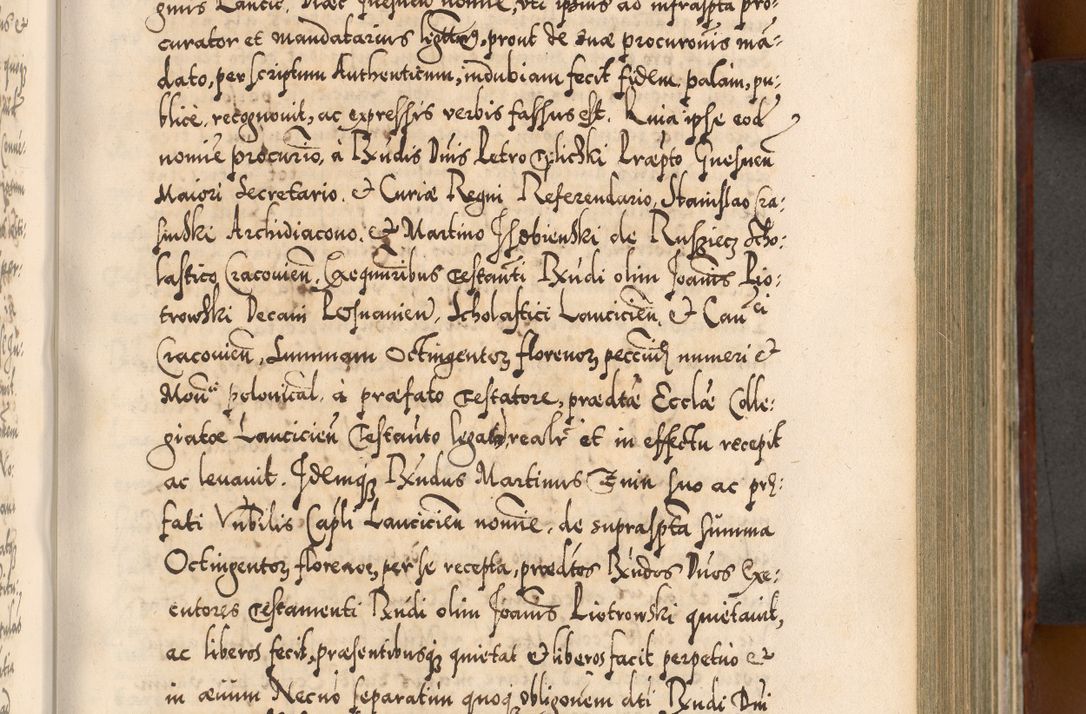 curator et mandatarius legittimus, prout de suae procuronis mã-
dato, per scriptum Authenticum, indubiam fecit fidem palàm, pu-
blicè, recognouit, ac expressis verbis fassus est. Quia ipse eod
nomie procurio, à Rxudis Dnis Petro Gniesnen
Maiori Secretario, et Curiæ Regni Referendario, Stanislao Cra-
sinski Archidiacono, et Martino Isdbienski de Rusziecz Scho-
lastico Cracouien, Exequutoribus Testãti Rxudi olim Joanis Pio-
trowski Decani Posnanien, Scholastici Lancicien, et Can ci
Cracouien, Summam Octingentorz florenorz numeri et
Monae polonical, à præfato Testatore, prædtæ Ecclæ Colle-
giatæ Lancicien Testãto legatã realr et in effectu recepit
ac leuauit. Idemqz Rxudus Martinus suo ac præ-
fati Vnbilis Capli Lancicien nomie, de suprasptã sum̃a
Octingentorz florenorz, per se recepta, prædtos Rxudos Dnos Exe-
entores Testamenti Rxudi olim Joanis Piotrowski quietauit,
ac liberos fecit, præsentibusqz quietat et liberos facit perpetuo et
in æuum Necnõ separatim quoqz obligonem dti Rxudi Dni